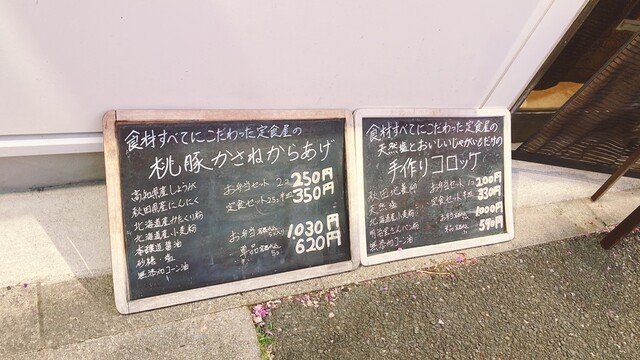 食材すべてにこだわった定食屋の
桃豚かさねからあげ
高知県産しょうが
秋田県産にんにく
北海道産かたくり粉
北海道産小麦粉
本醸造醤油
砂糖・塩
無添加コーン油
お弁当セット 2コ 250円
定食セット 350円
お弁当 1030円
単品 620円
食材すべてにこだわった定食屋の
天然塩とおいしいじゃがいもだけの
手作りコロッケ
天然塩
北海道産小麦粉
無添加コーン油
お弁当セット 200円
定食セット 330円
お弁当 1000円
単品 590円